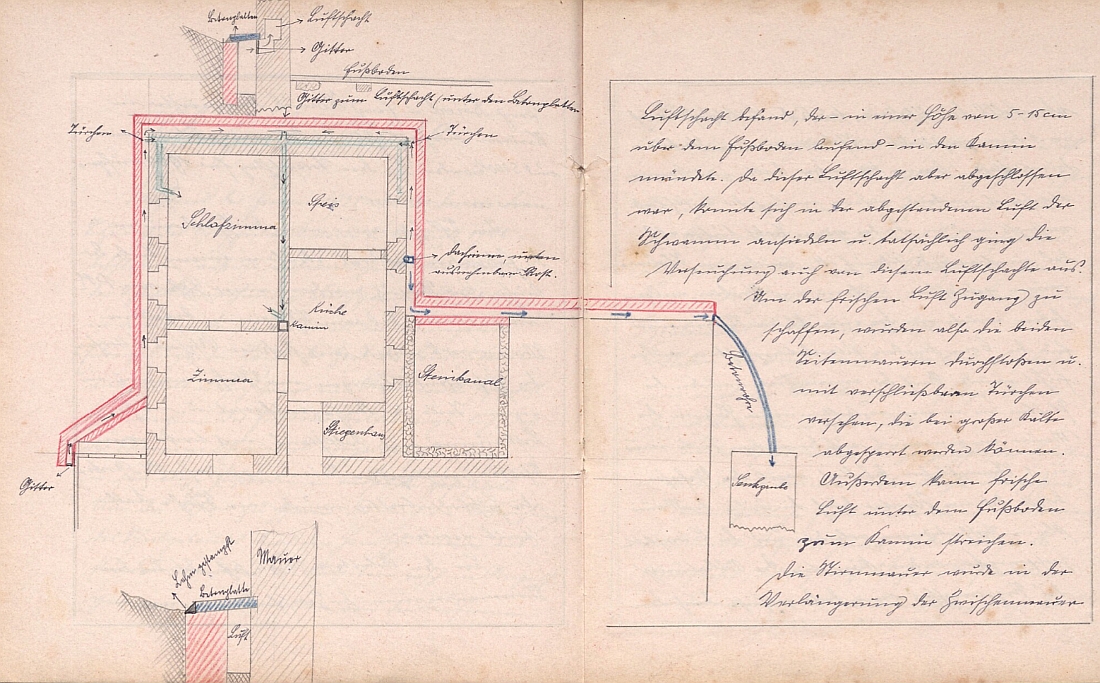 Betonplatten
Luftschacht
Gitter
Fußboden
Gitter zum Luftschacht (unter den Betonplatten
Türchen
Türchen
Schlafzimmer
Speis
Dachrinne, unten
Rost.
Küche
Kamin
Zimmer
Steinkanal
Stiegenhaus
Gitter
Betonrohr
Senkgrube
Lehm gestampft
Betonplatte
Mauer
Luft
Luftschacht befand, der – in einer Höhe von 5–15 cm
über dem Fußboden laufend – in den Kamin
mündete. Da dieser Luftschacht aber abgeschlossen
war, konnte sich in der abgestandenen Luft der
Schwamm ansiedeln u. tatsächlich ging die
Verseuchung auch von diesem Luftschachte aus.
Um der frischen Luft Zugang zu
schaffen, wurden also die beiden
Seitenmauern durchstoßen u.
mit verschließbaren Türchen
versehen, die bei großer Kälte
abgesperrt werden können.
Außerdem kann frische
Luft unter dem Fußboden
zum Kamin streichen.
Die Stirnmauer wurde in der
Verlängerung der Zwischenmauer